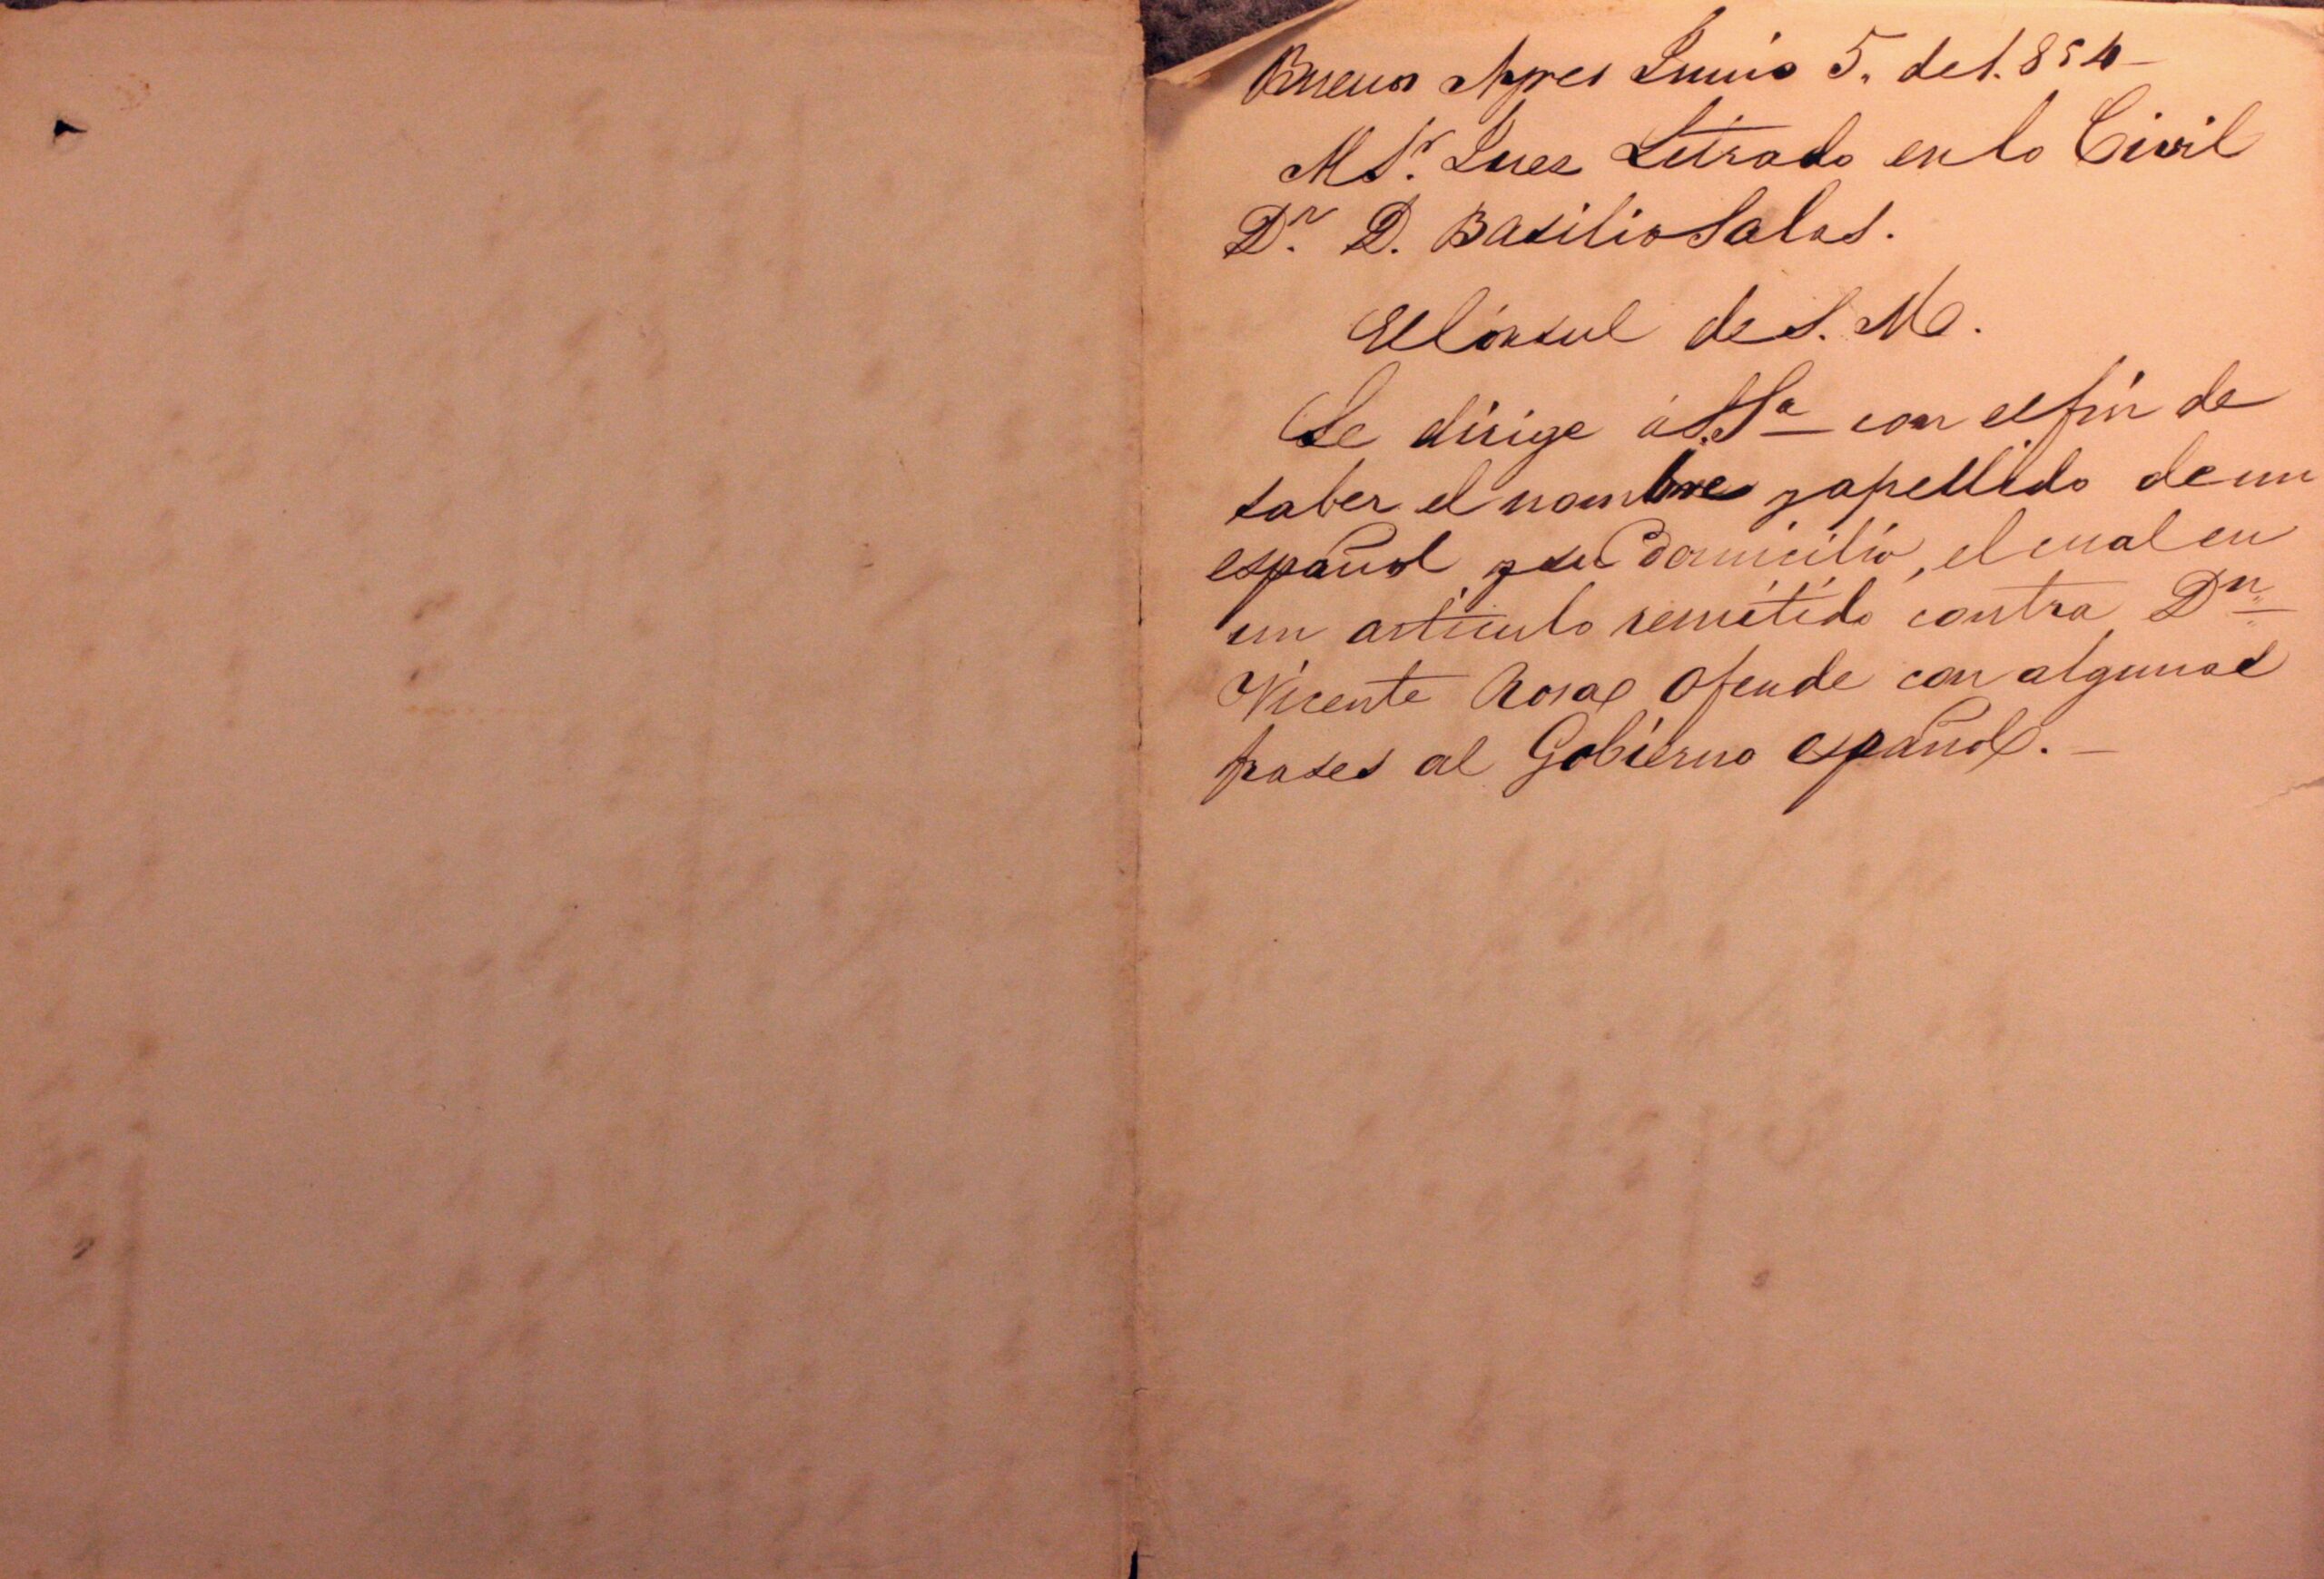 Buenos Ayres Junio 5. de 1.854—
Al Sr. Juez Letrado en lo Civil
Dr. D. Basilio Salas.
El Cónsul de S. M.
Se dirige á S.Sª con el fin de
saber el nombre y apellido de un
español y su domicilio, el cual en
un artículo remitido contra Dn.
Vicente Rosa ofende con algunas
frases al Gobierno español.—